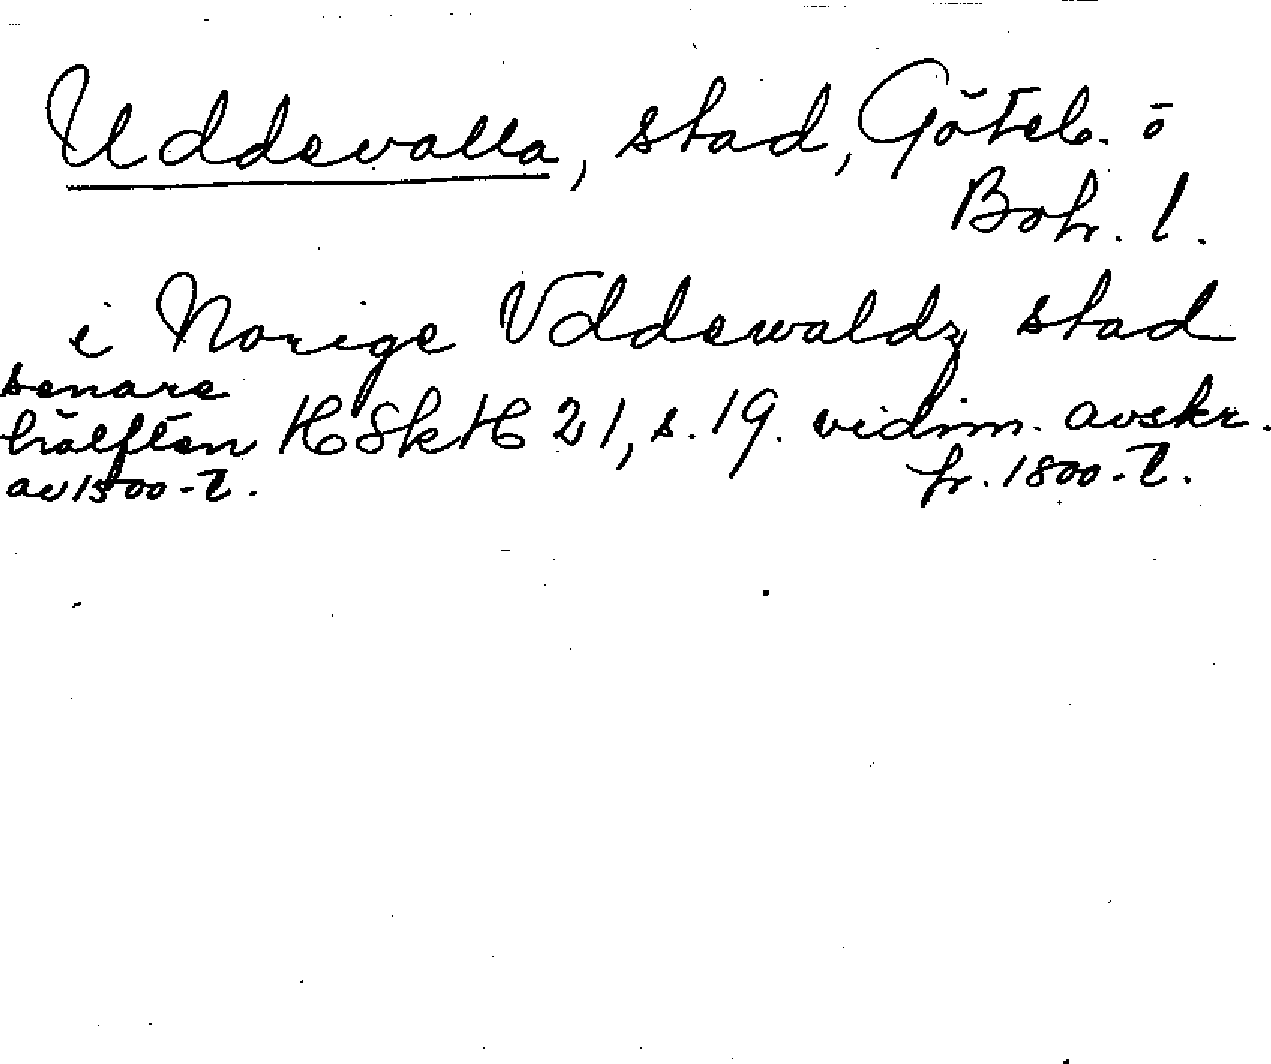 Uddevalla, stad, Göteb. o
Boh. l.
i Norige Vddewaldz stad
senare
hälften HSkH 21, s. 19. vidim. avskr.
av 1500-t. fr. 1800-t.